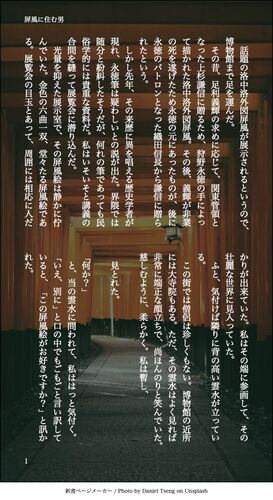 屏風に住む男
話題の洛中洛外図屏風が展示されるというので、
博物館まで足を運んだ。
その昔、足利義輝の求めに応じて、関東管領と
なった上杉謙信に贈るため、狩野永徳の手によっ
て描かれた洛中洛外図屏風。その後、義輝が非業
の死を遂げたため永徳の元にあったものが、後に
永徳のパトロンとなった織田信長から謙信に贈ら
れたという。
しかし先年、その来歴に異を唱える歴史学者が
現れ、永徳筆は疑わしいとの説が出た。界隈では
随分と紛糾したそうだが、何れの筆であっても民
俗学的には貴重な資料だ。私はいそいそと講義の
合間を縫って展覧会に潜り込んだ。
光量を抑えた展示室で、その屏風絵は静かに佇
んでいた。金色の六曲一双、堂々たる屏風絵であ
る。展覧会の目玉とあって、周囲には相応に人だ
かりが出来ていた。私はその端に参画して、その
壮麗な世界に見入っていた。
ふと、気付けば隣りに背の高い雲水が立ってい
る。
この街では僧侶は珍しくもない。博物館の近所
には大寺院もある。ただ、その雲水はよく見れば
非常に端正な顔立ちで、尚ほんのりと笑んでいた。
慈しむように、柔らかく。私は暫し、
見とれた。
「何か?」
と、当の雲水に問われて、私ははっと気付く。
「いえ、別に」と口の中でもごもごと言い訳して
いると、「この屏風絵がお好きですか?」と訊か
れた。
1
新書ページメーカー / Photo by Daniel Tseng on Unsplash